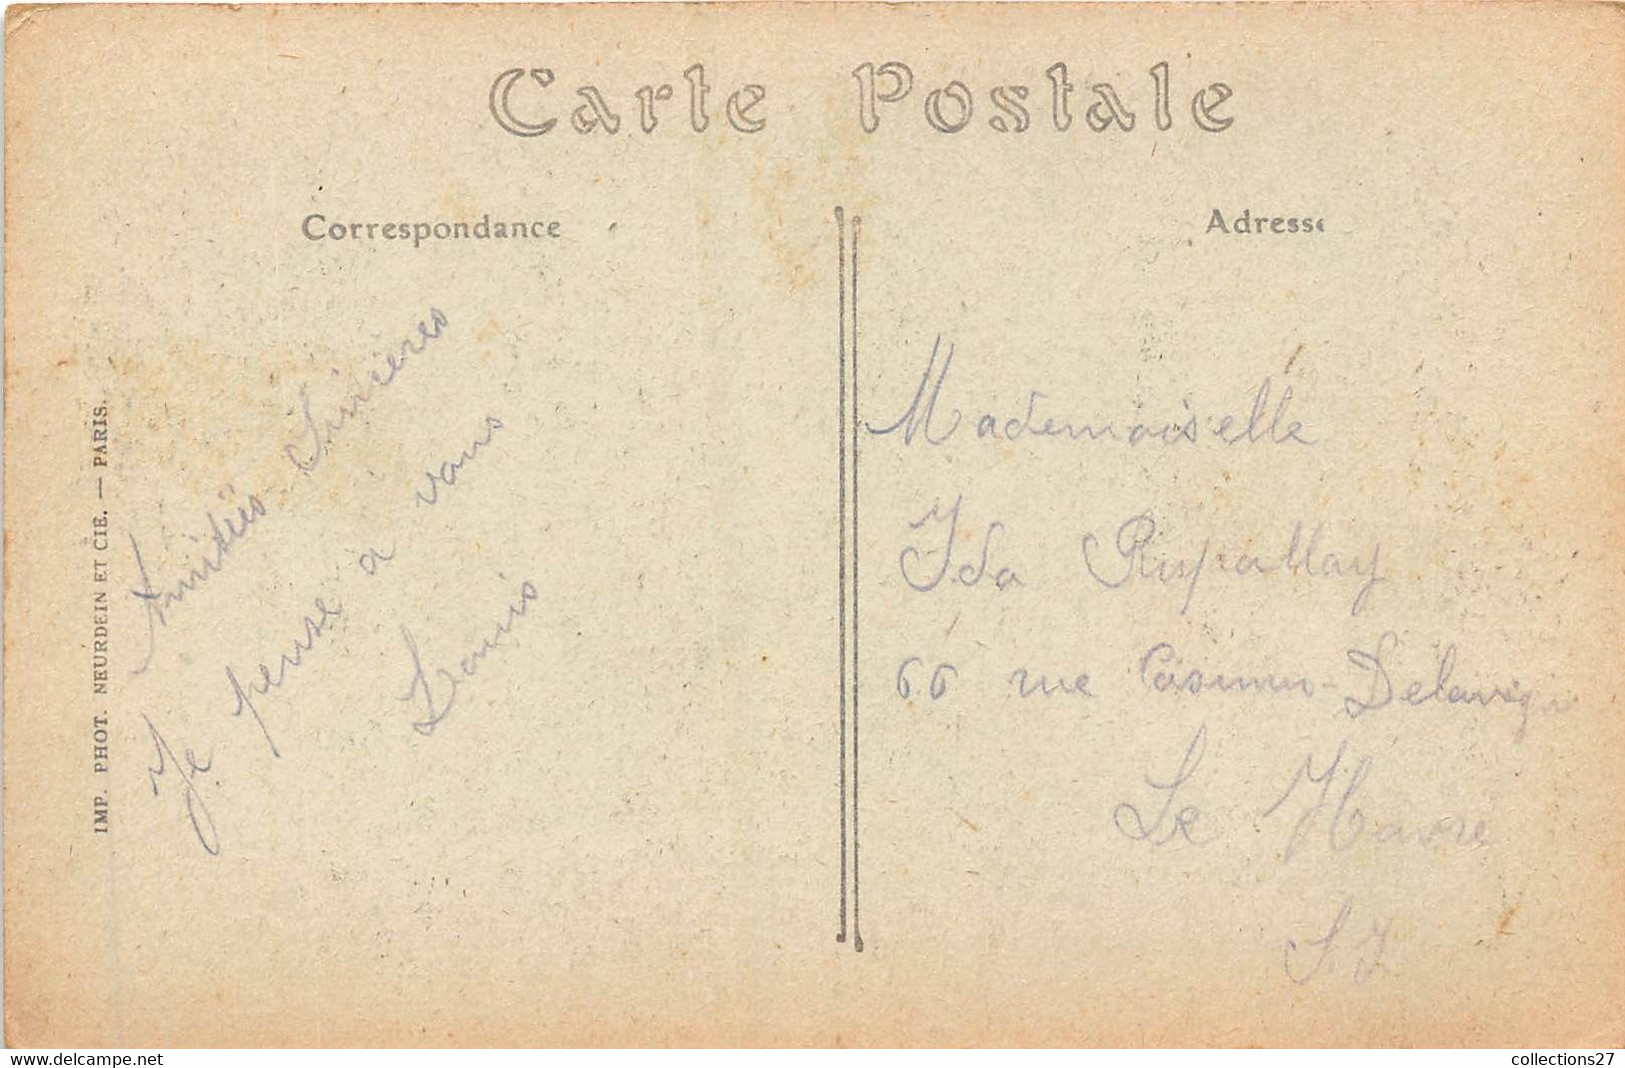 Carte Postale
Correspondance
Adresse
Amitiés Sincères
Je pense a vous
Louis
Mademoiselle
Ida
66 rue Casimir-Delavigne
Le Havre
S. I
IMP. PHOT. NEURDEIN ET CIE. — PARIS.
collections27